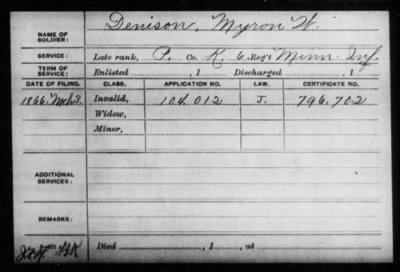 NAME OF SOLDIER: Denison, Myron W.
SERVICE: Late rank, P. Co. K, 6 Reg't Minn. Inf.
TERM OF SERVICE: Enlisted , 1 Discharged , 1
DATE OF FILING. CLASS. APPLICATION NO. LAW. CERTIFICATE NO.
1866. Mch 3. Invalid, 104.012 J. 796.702
Widow,
Minor,
ADDITIONAL SERVICES:
REMARKS:
Died , 1 , at